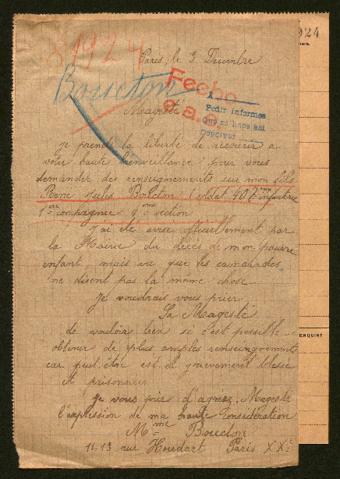 81924
924
Paris, le 3 Décembre
Boucton
Fecho
Pedir informes
Majesté
Je prends la liberté de recourir à
votre haute bienveillance pour vous
demander des renseignements sur mon fils
Jules soldat 407e infanterie
1ère compagnie section
J'ai été avisé officiellement par
la Mairie du décès de mon pauvre
enfant mais vu que les camarades
ne disent pas la même chose
Je voudrais vous prier
Sa Magesté
de vouloir bien si c'est possible
obtenir de plus amples renseignements
car peut être est il gravement blessé
et prisonnier
Je vous pries d'agréez Magesté
l'expression de ma haute considération
Mme Boucton
11-13 rue Houdart Paris XXe